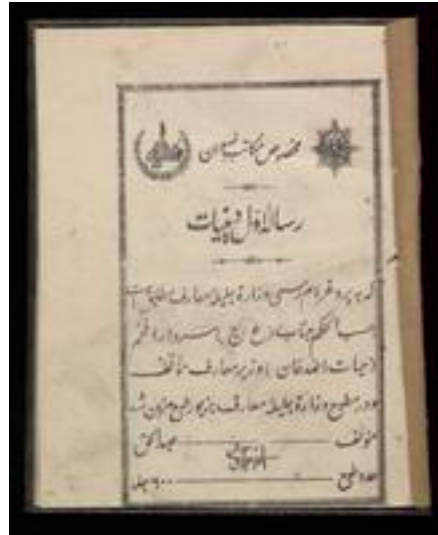 مخصوص مکاتب نسوان
رسالهٔ اول دینیات
که به پروغرام رسمی وزارة جلیله معارف
حسب الحکم جناب (ع ج) سردار افخم
(حیات الله خان) وزیر معارف تألیف
و در مطبع وزارة جلیله معارف بزیور طبع مزین شد
مؤلف عبدالحق
عدد طبع ۶۰۰ جلد